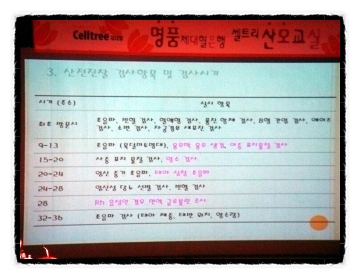 Celltree 셀트리 명품제대혈은행 셀트리산모교실
3. 산전진찰 검사항목 및 검사시기
시기 (주수) 검사 항목
최초 방문시 초음파, 빈혈 검사, 혈액형 검사, 풍진 항체 검사, 간염 검사, 에이즈
검사, 소변 검사, 자궁경부 세포진 검사
9-13 초음파 (목덜미투명대), 융모막 융모 생검, 이중 표지물질 검사
15-20 사중 표지 물질 검사, 양수 검사
20-24 임신 중기 초음파, 태아 심장 초음파
24-28 임신성 당뇨 선별 검사, 빈혈 검사
28 Rh 음성인 경우 면역 글로불린 주사
32-36 초음파 검사 (태아 체중, 태반 위치, 양수량)